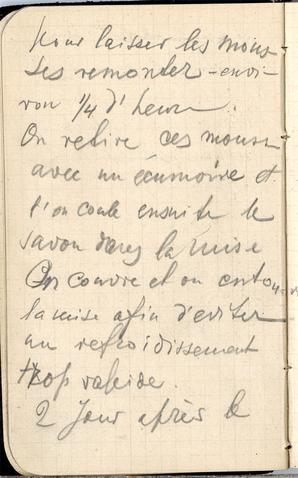 pour laisser les mous-
ses remonter - envi-
ron 1/4 d'heure.
On retire ces mousses
avec un écumoire et
l'on coule ensuite le
savon dans la mise
On couvre et on entou-
la mise afin d'eviter
un refroidissement
trop rapide.
2 Jour après le